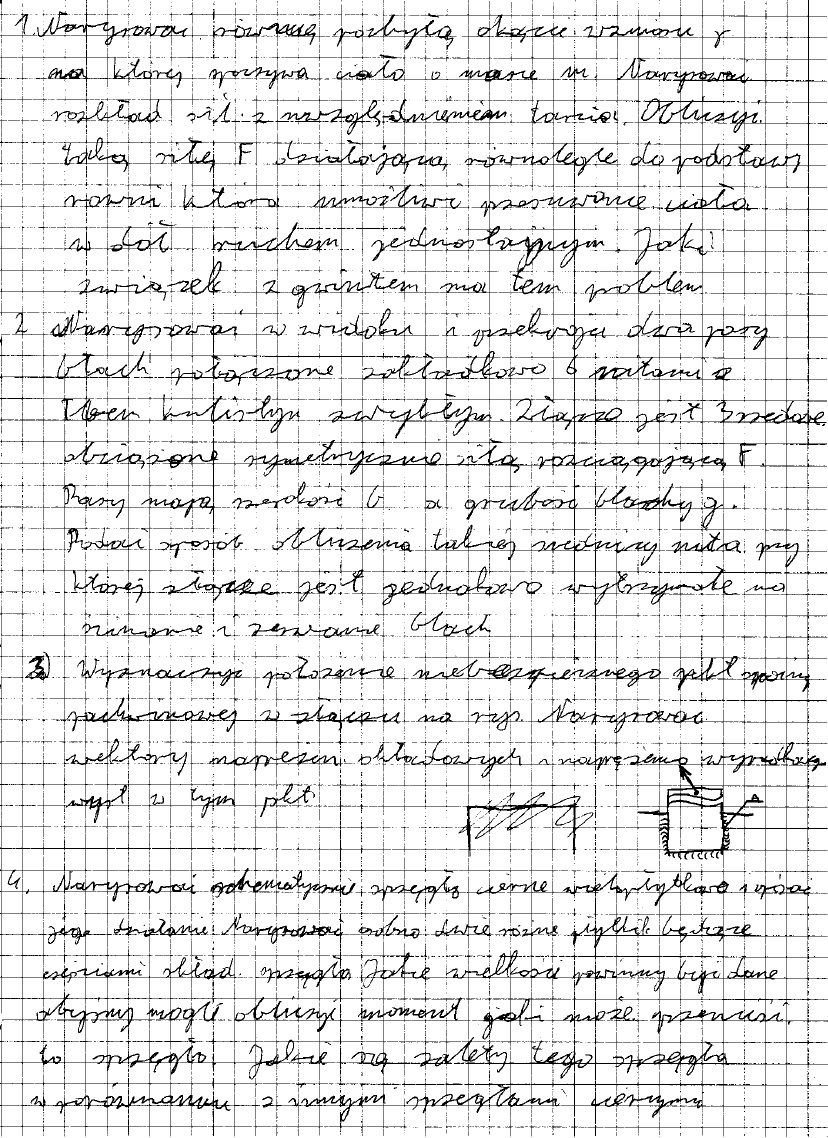 1. Narysować równię pochyłą o kącie wzniosu γ
na której spoczywa ciało o masie m. Narysować
rozkład sił z uwzględnieniem tarcia. Obliczyć
taką siłę F działającą równolegle do podstawy
równi która umożliwi przesuwanie ciała
w dół ruchem jednostajnym. Jaki
związek z gwintem ma ten problem
2 Narysować w widoku i przekroju dwa pasy
blach połączone zakładkowo 6 nitami z
łbem kulistym zwykłym. Złącze jest 3 rzędowe
obciążone symetrycznie siłą rozciągającą F.
Pasy mają szerkość b a grubość blachy g.
Podać sposób obliczenia takiej średnicy nita przy
której złącze jest jednakowo wytrzymałe na
ścinanie i zerwanie blach
3) Wyznaczyć położenie niebezpiecznego pkt spoiny
pachwinowej w złączu na rys. Narysować
wektory naprężeń składowych i naprężenia wypadkowego
wyst w tym pkt.
4. Narysować schematycznie sprzęgło cierne wielopłytkowe i opisać
jego działanie Narysować osobno dwie różne płytki będące
częściami skład. sprzęgła Jakie wielkości powinny być dane
abyśmy mogli obliczyć moment jaki może przenieść
to sprzęgło. Jakie są zalety tego sprzęgła
w porównaniu z innymi sprzęgłami ciernymi